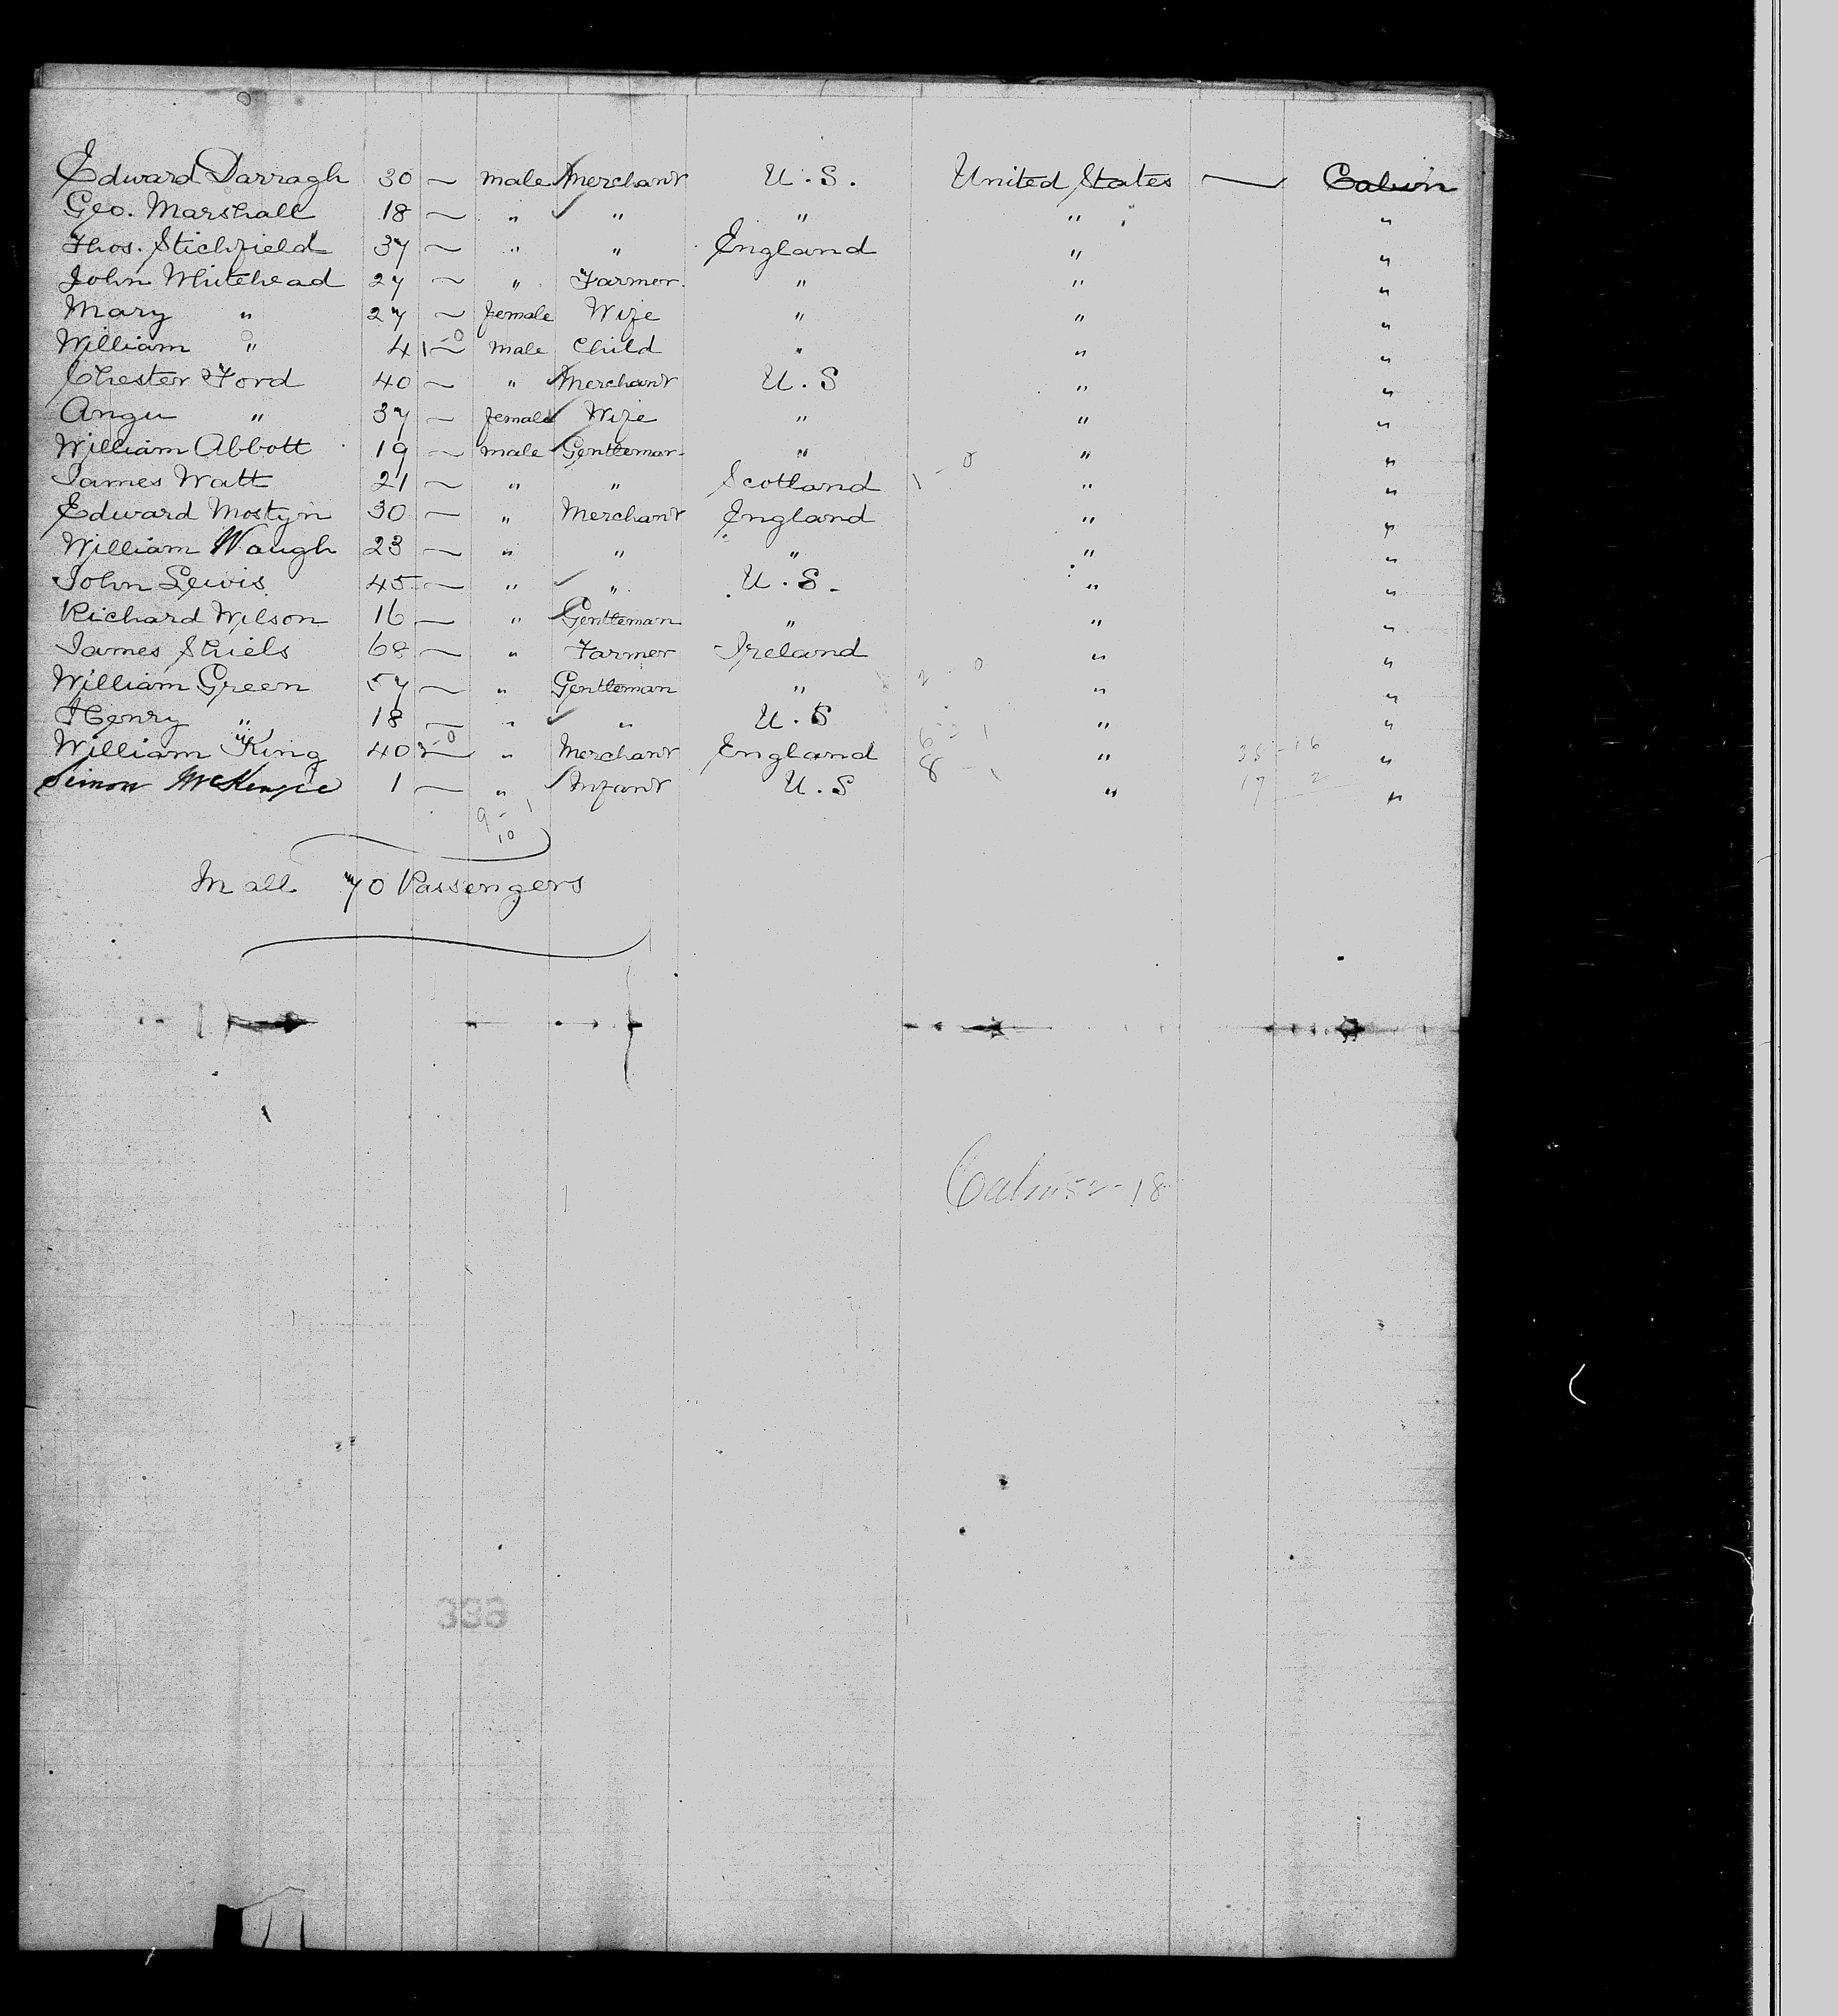 Edward Darragh 30 ~ male Merchant U.S. United States — Cabin
Geo. Marshall 18 ~ " " " " "
Thos. Stichfield 37 ~ " " England " "
John Whitehead 27 ~ " Farmer " " "
Mary " 27 ~ female Wife " " "
William " 4 1-0 male Child " " "
Chester Ford 40 ~ " Merchant U.S " "
Angu " 37 ~ female Wife " " "
William Abbott 19 ~ male Gentleman " " "
James Watt 21 ~ " " Scotland 1-0 " "
Edward Mostyn 30 ~ " Merchant England " "
William Waugh 23 ~ " " " " "
John Lewis 45 ~ " " U.S. " "
Richard Wilson 16 ~ " Gentleman " " "
James Shiels 68 ~ " Farmer Ireland " "
William Green 57 ~ " Gentleman " 2-0 " "
Henry " 18 ~ " " U.S " "
William King 40 2-0 " Merchant England 6-1 " 35-16 "
Simon McKenzie 1 — " Infant U.S 8-1 " 17 2 "
9-1
10
In all 70 Passengers
Cabin 52-18
339